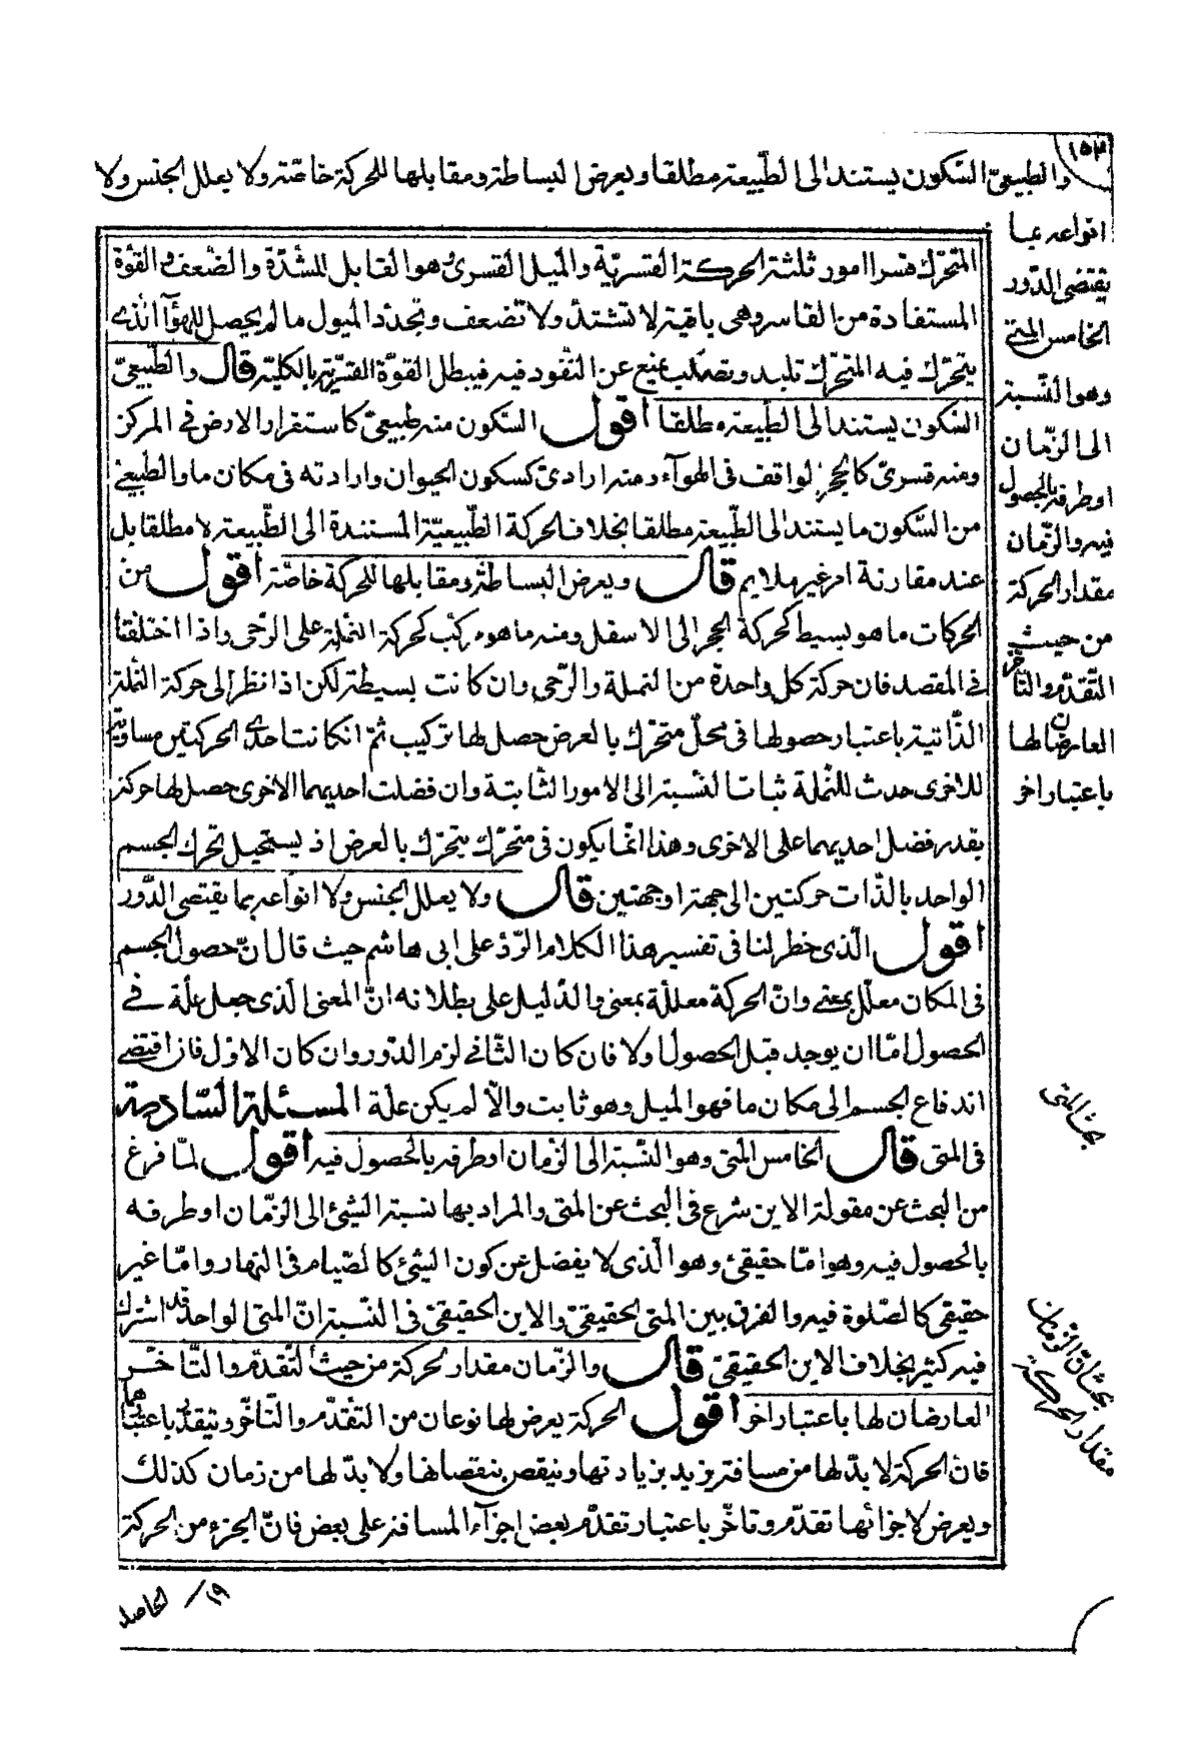 ١٥٣
والطبيعيّ السّكون يستند الى الطّبيعة مطلقا ويعرض البساطة ومقابلها للحركة خاصّة ولا يعلل الجنس ولا
انواعه بما
يقتضى الدّور
الخامس المتى
وهو النّسبة
الى الزّمان
او طرفه بالحصول
فيه والزّمان
مقدار الحركة
من حيث
التقدّم والتأخّر
العارضان لها
باعتبار اخر
المتحرّك قسرا امور ثلثة الحركة القسريّة والميل القسرى وهو القابل للشدّة والضعف والقوّة
المستفادة من القاسر وهى باقية لا تشتدّ ولا تضعف وتجدّد الميول ما لم يحصل للهوآء الذى
يتحرّك فيه المتحرّك تلبد وتصلّب يمنع عن النّفوذ فيه فيبطل القوّة القسريّة بالكلية قال والطّبيعىّ
السّكون يستند الى الطّبيعة مطلقا اقول السّكون منه طبيعىّ كاستقرار الارض فى المركز
ومنه قسرىّ كالحجر الواقف فى الهوآء ومنه ارادىّ كسكون الحيوان وارادته فى مكان ما والطبيعى
من السّكون ما يستند الى الطّبيعة مطلقا بخلاف الحركة الطّبيعيّة المستندة الى الطّبيعة لا مطلقا بل
عند مقارنة امر غير ملايم قال ويعرض البساطة ومقابلها للحركة خاصّة اقول من
الحركات ما هو بسيط كحركة الحجر الى الاسفل ومنه ما هو مركّب كحركة النملة على الرّحى واذا اختلفتا
فى المقصد فان حركة كل واحدة من النملة والرّحى وان كانت بسيطة لكن اذا نظر الى حركة النملة
الذّاتية باعتبار حصولها فى محلّ متحرّك بالعرض حصل لها تركيب ثمّ ان كانت احدى الحركتين مساوية
للاخرى حدث للنّملة ثبات بالنّسبة الى الامور الثّابتة وان فضلت احديهما الاخرى حصل لها حركة
بقدر فضل احديهما على الاخرى وهذا انّما يكون فى متحرّك يتحرّك بالعرض اذ يستحيل تحرّك الجسم
الواحد بالذّات حركتين الى جهة او جهتين قال ولا يعلل الجنس ولا انواعه بما يقتضى الدّور
اقول الّذى خطر لنا فى تفسير هذا الكلام الرّدّ على ابى هاشم حيث قال انّ حصول الجسم
فى المكان معلّل بمعنى وانّ الحركة معلّلة بمعنى والدّليل على بطلانه انّ المعنى الّذى جعل علّة فى
الحصول امّا ان يوجد قبل الحصول اولا فان كان الثّانى لزم الدّور وان كان الاوّل فان اقتضى
اندفاع الجسم الى مكان ما فهو الميل وهو ثابت والّا لم يكن علّة المسئلة السّادسة
فى المتى قال الخامس المتى وهو النّسبة الى الزّمان او طرفه بالحصول فيه اقول لمّا فرغ
من البحث عن مقولة الاين شرع فى البحث عن المتى والمراد بها نسبة الشّيئ الى الزّمان او طرفه
بالحصول فيه وهو امّا حقيقىّ وهو الّذى لا يفضل عن كون الشّيئ كالصّيام فى النّهار وامّا غير
حقيقى كالصّلوة فيه والفرق بين المتى الحقيقىّ والاين الحقيقىّ فى النّسبة انّ المتى الواحد قد اشترك
فيه كثير بخلاف الاين الحقيقىّ قال والزّمان مقدار الحركة من حيث التّقدّم والتّأخّر
العارضان لها باعتبار اخر اقول الحركة يعرض لها نوعان من التّقدّم والتّأخّر ويتقدّر باعتبارهما
فان الحركة لا بدّ لها من مسافة يزيد بزيادتها وينقص بنقصانها ولا بدّ لها من زمان كذلك
ويعرض لاجزائها تقدّم وتأخّر باعتبار تقدّم بعض اجزآء المسافة على بعض فانّ الجزء من الحركة
بحث المتى
بحث انّ الزّمان
مقدار الحركة
١٩
الحاصلة